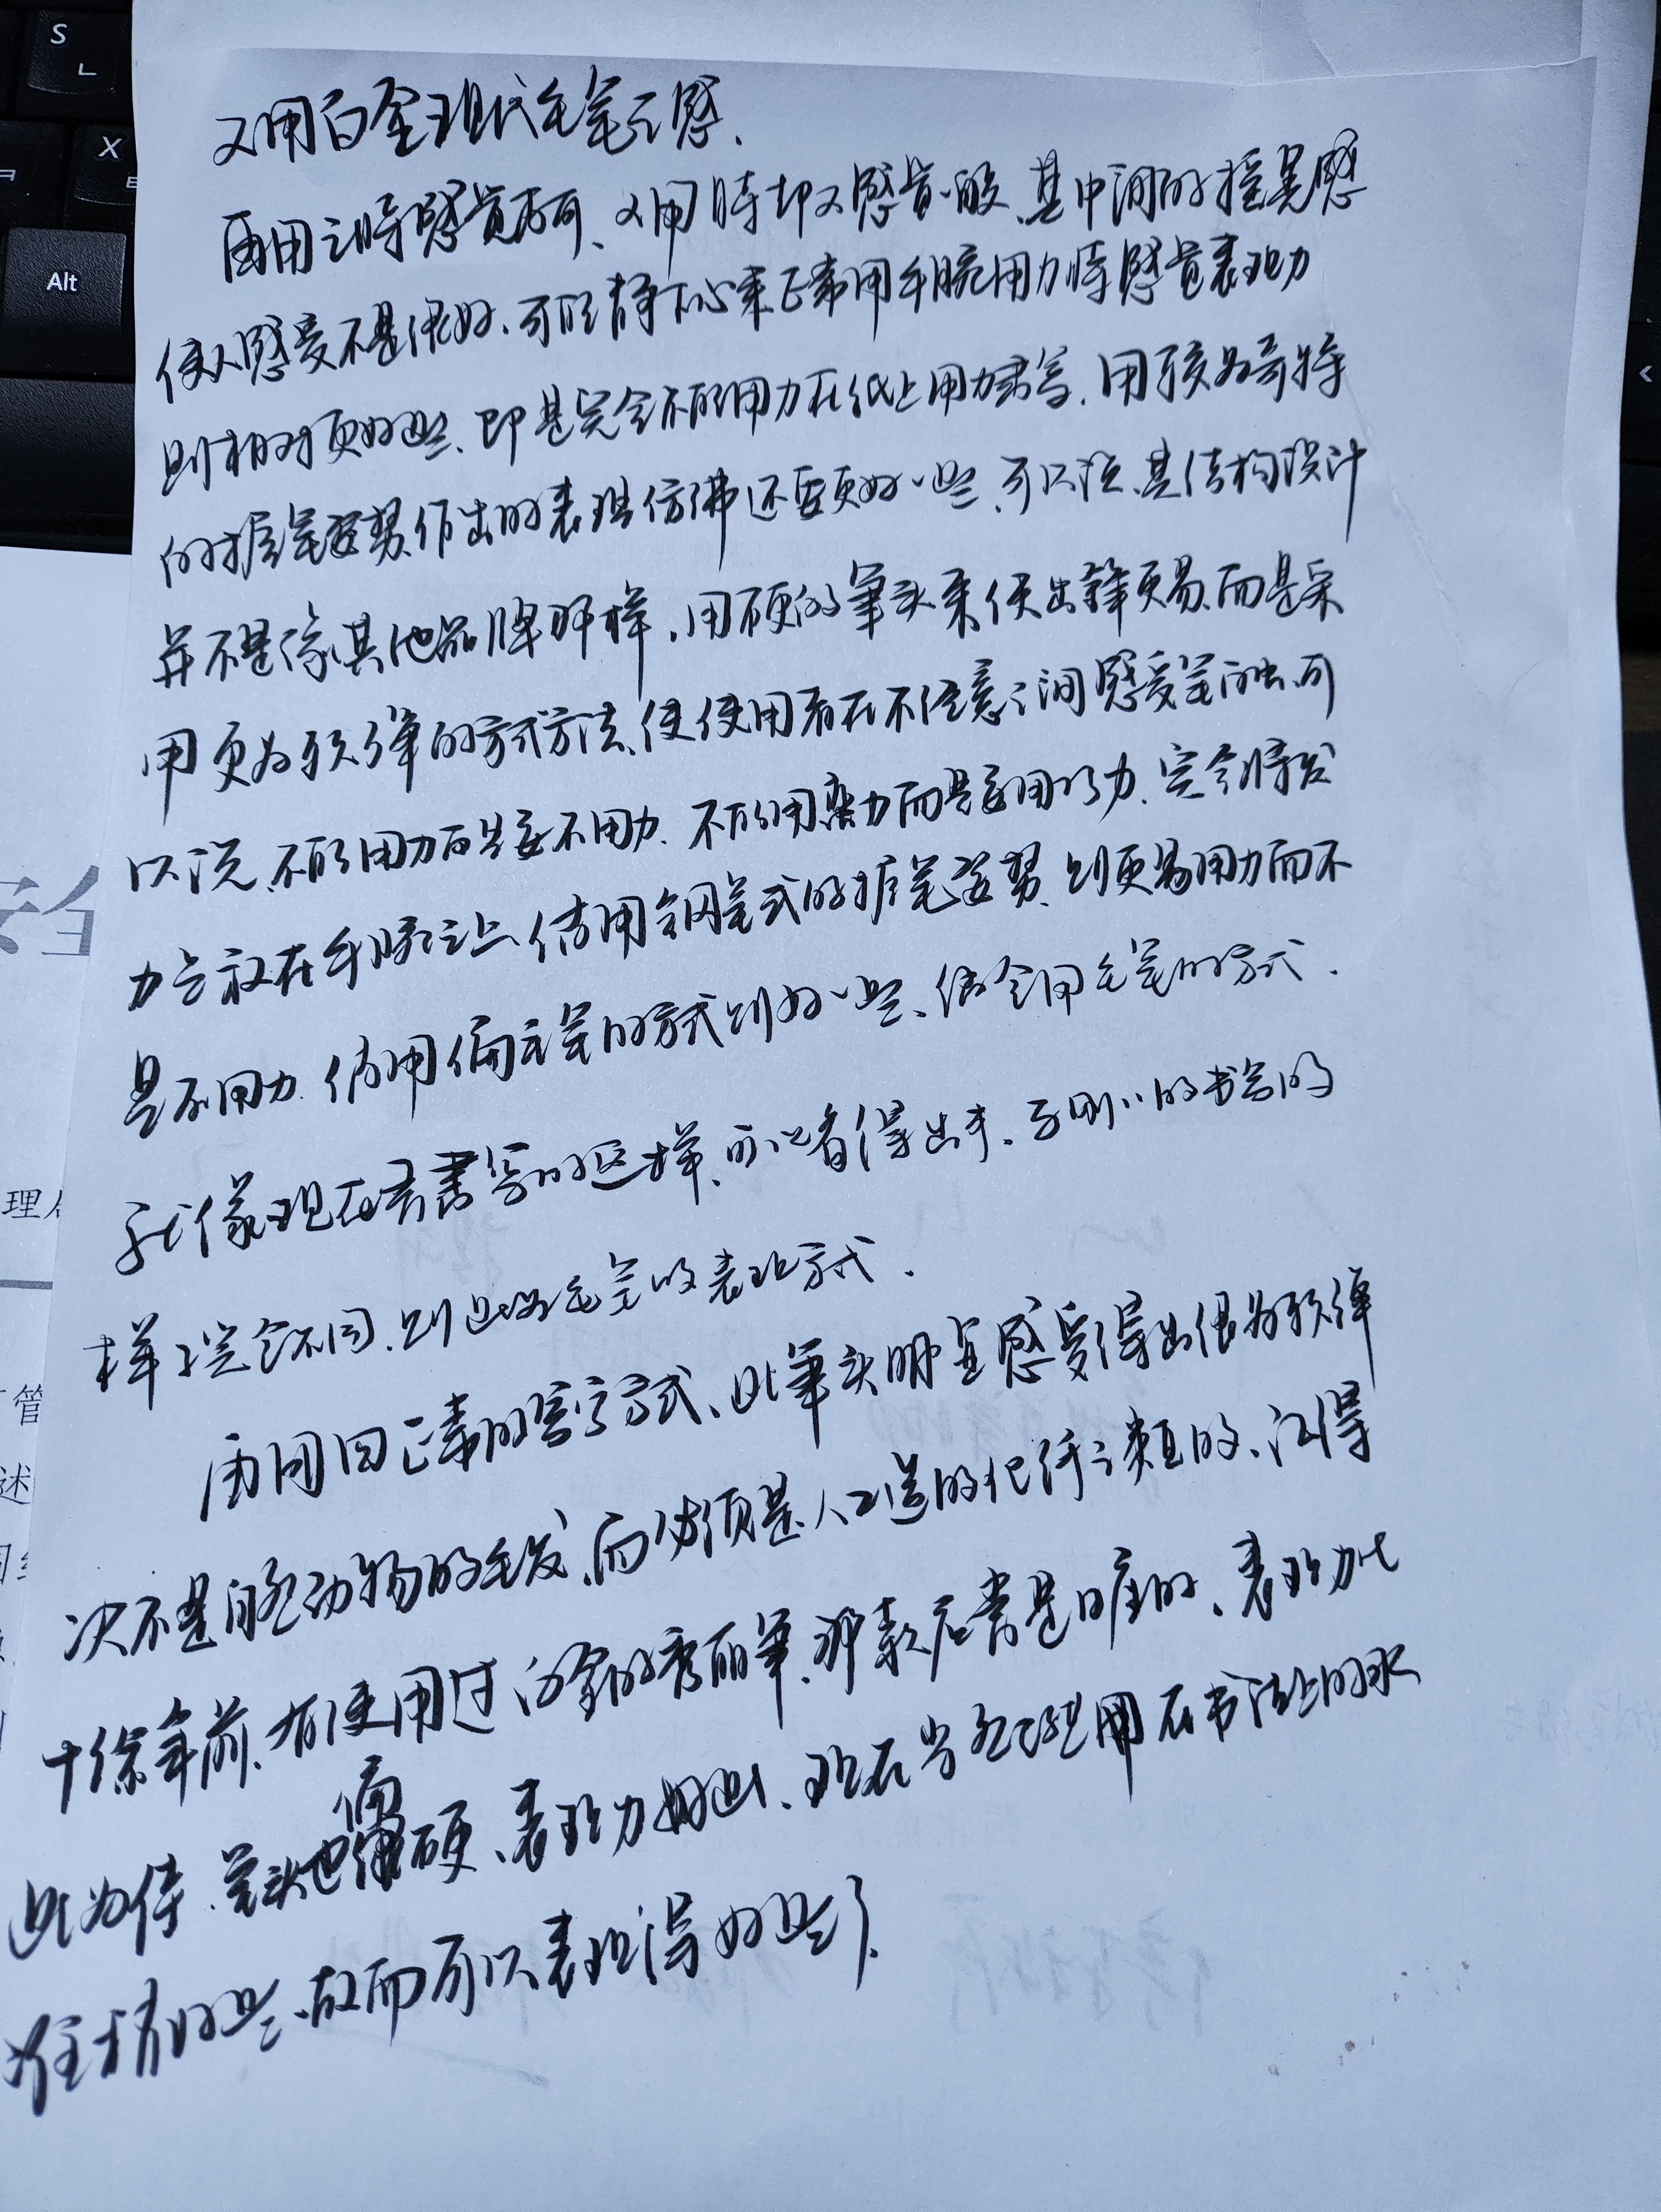 又用白金现代毛笔之感、
再用之時感觉尚可、又用時却又感觉一般、其中间的摇晃感
使人感受不是很好、可能静下心来正常用手腕用力時感觉表现力
则相对更好些、即是完全不能用力在纸上用力書写、用较为奇特
的握笔姿势作出的表現仿佛还要更好一些、可以说、其结构设计
并不是像其他品牌那样、用硬的筆头来使出鋒更易、而是采
用更为软弹的方式方法、使使用者在不注意之间感受笔 可
以说、不能用力而是要不用力、不能用蛮力而是要用巧力、完全将发
力点放在手腕之上、借用钢笔式的握笔姿势、则更易用力而不
是不用力、借用偏 笔的方式则好一些、完全用毛笔的方式、
就像现在書写的这样、可以看得出来、与刚刚的书写的
样子完全不同、则 毛笔的表现方式、
再用回正常的写字方式、此筆头明显感受得出很为软弹
决不是 动物的毛发、而必须是人工造的化纤之类的、记得
十馀年前、有使用过白金的秀丽筆、那款 常是 的、表现力比
此为佳、笔头也偏硬、表现力好些、现在 用在书法上的水
准 好些、故而可以表现得好些了、
S
ㄴ
X
Alt
理
管
述